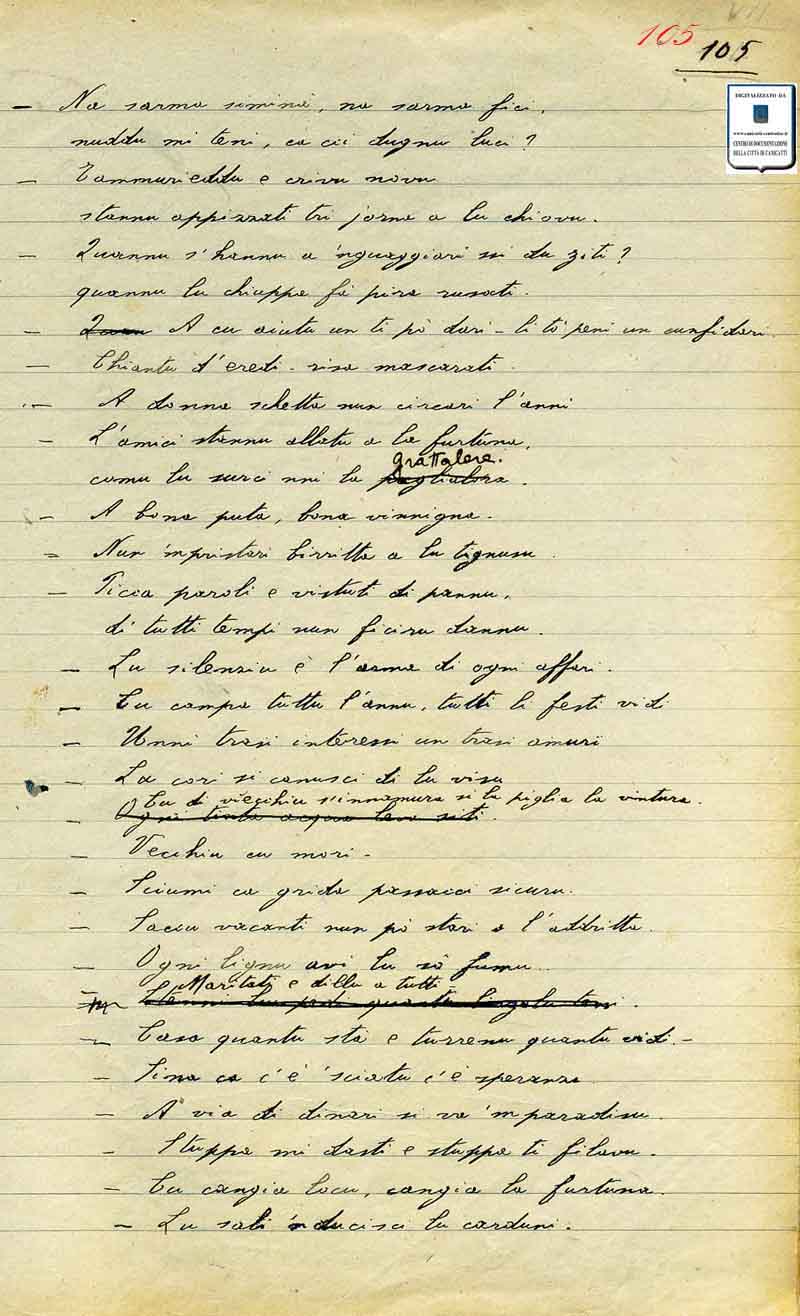 105 105
DIGITALIZZATO DA
CENTRO DI DOCUMENTAZIONE
DELLA CITTÀ DI CANICATTÌ
– Na sarma siminà, na sarma fici,
nuddu mi teni, ca cci dugnu luci?
– Tammurieddu e crivu novu
stannu appizzati tri jorna a lu chiovu.
– Quannu s'hannu a 'nguaggiari si du ziti?
quannu lu chiuppu fà pira rusati.
– A cu aiutu un ti pò dari – li tò peni un cunfidari.
– Chiantu d'eredi – risa mascarati.
– A donna schetta nun circari l'anni
– L'amici stannu allatu a la furtuna,
comu lu surci nni la grattalora.
– A bona puta, bona vinnigna.
– Nun 'mpristari birritta a lu tignusu.
– Picca paroli e vistuti di pannu,
di tutti tempi nun ficiru dannu.
– Lu silenziu è l'arma di ogni affari.
– Cu campa tuttu l'annu, tutti li festi vidi
– Unni trasi interessi un trasi amuri
– Lu cori si canusci di lu visu
– Cu di viecchiu s'innamura si la piglia la vintura.
– Vecchiu cu mori –
– Sciumi ca grida passacci sicuru.
– Saccu vacanti nun pò stari a l'additta.
– Ogni lignu avi lu sò fumu.
– Maritati e dillu a tutti
– Casa quantu stà e turrenu quantu vidi. –
– Sina ca c'è 'sciatu c'è speranza
– A via di dinari si va 'mparadisu.
– Stuppa mi dasti e stuppa ti filavu.
– Cu cangia locu, cangia la furtuna.
– Lu sali 'nducisci lu carduni.